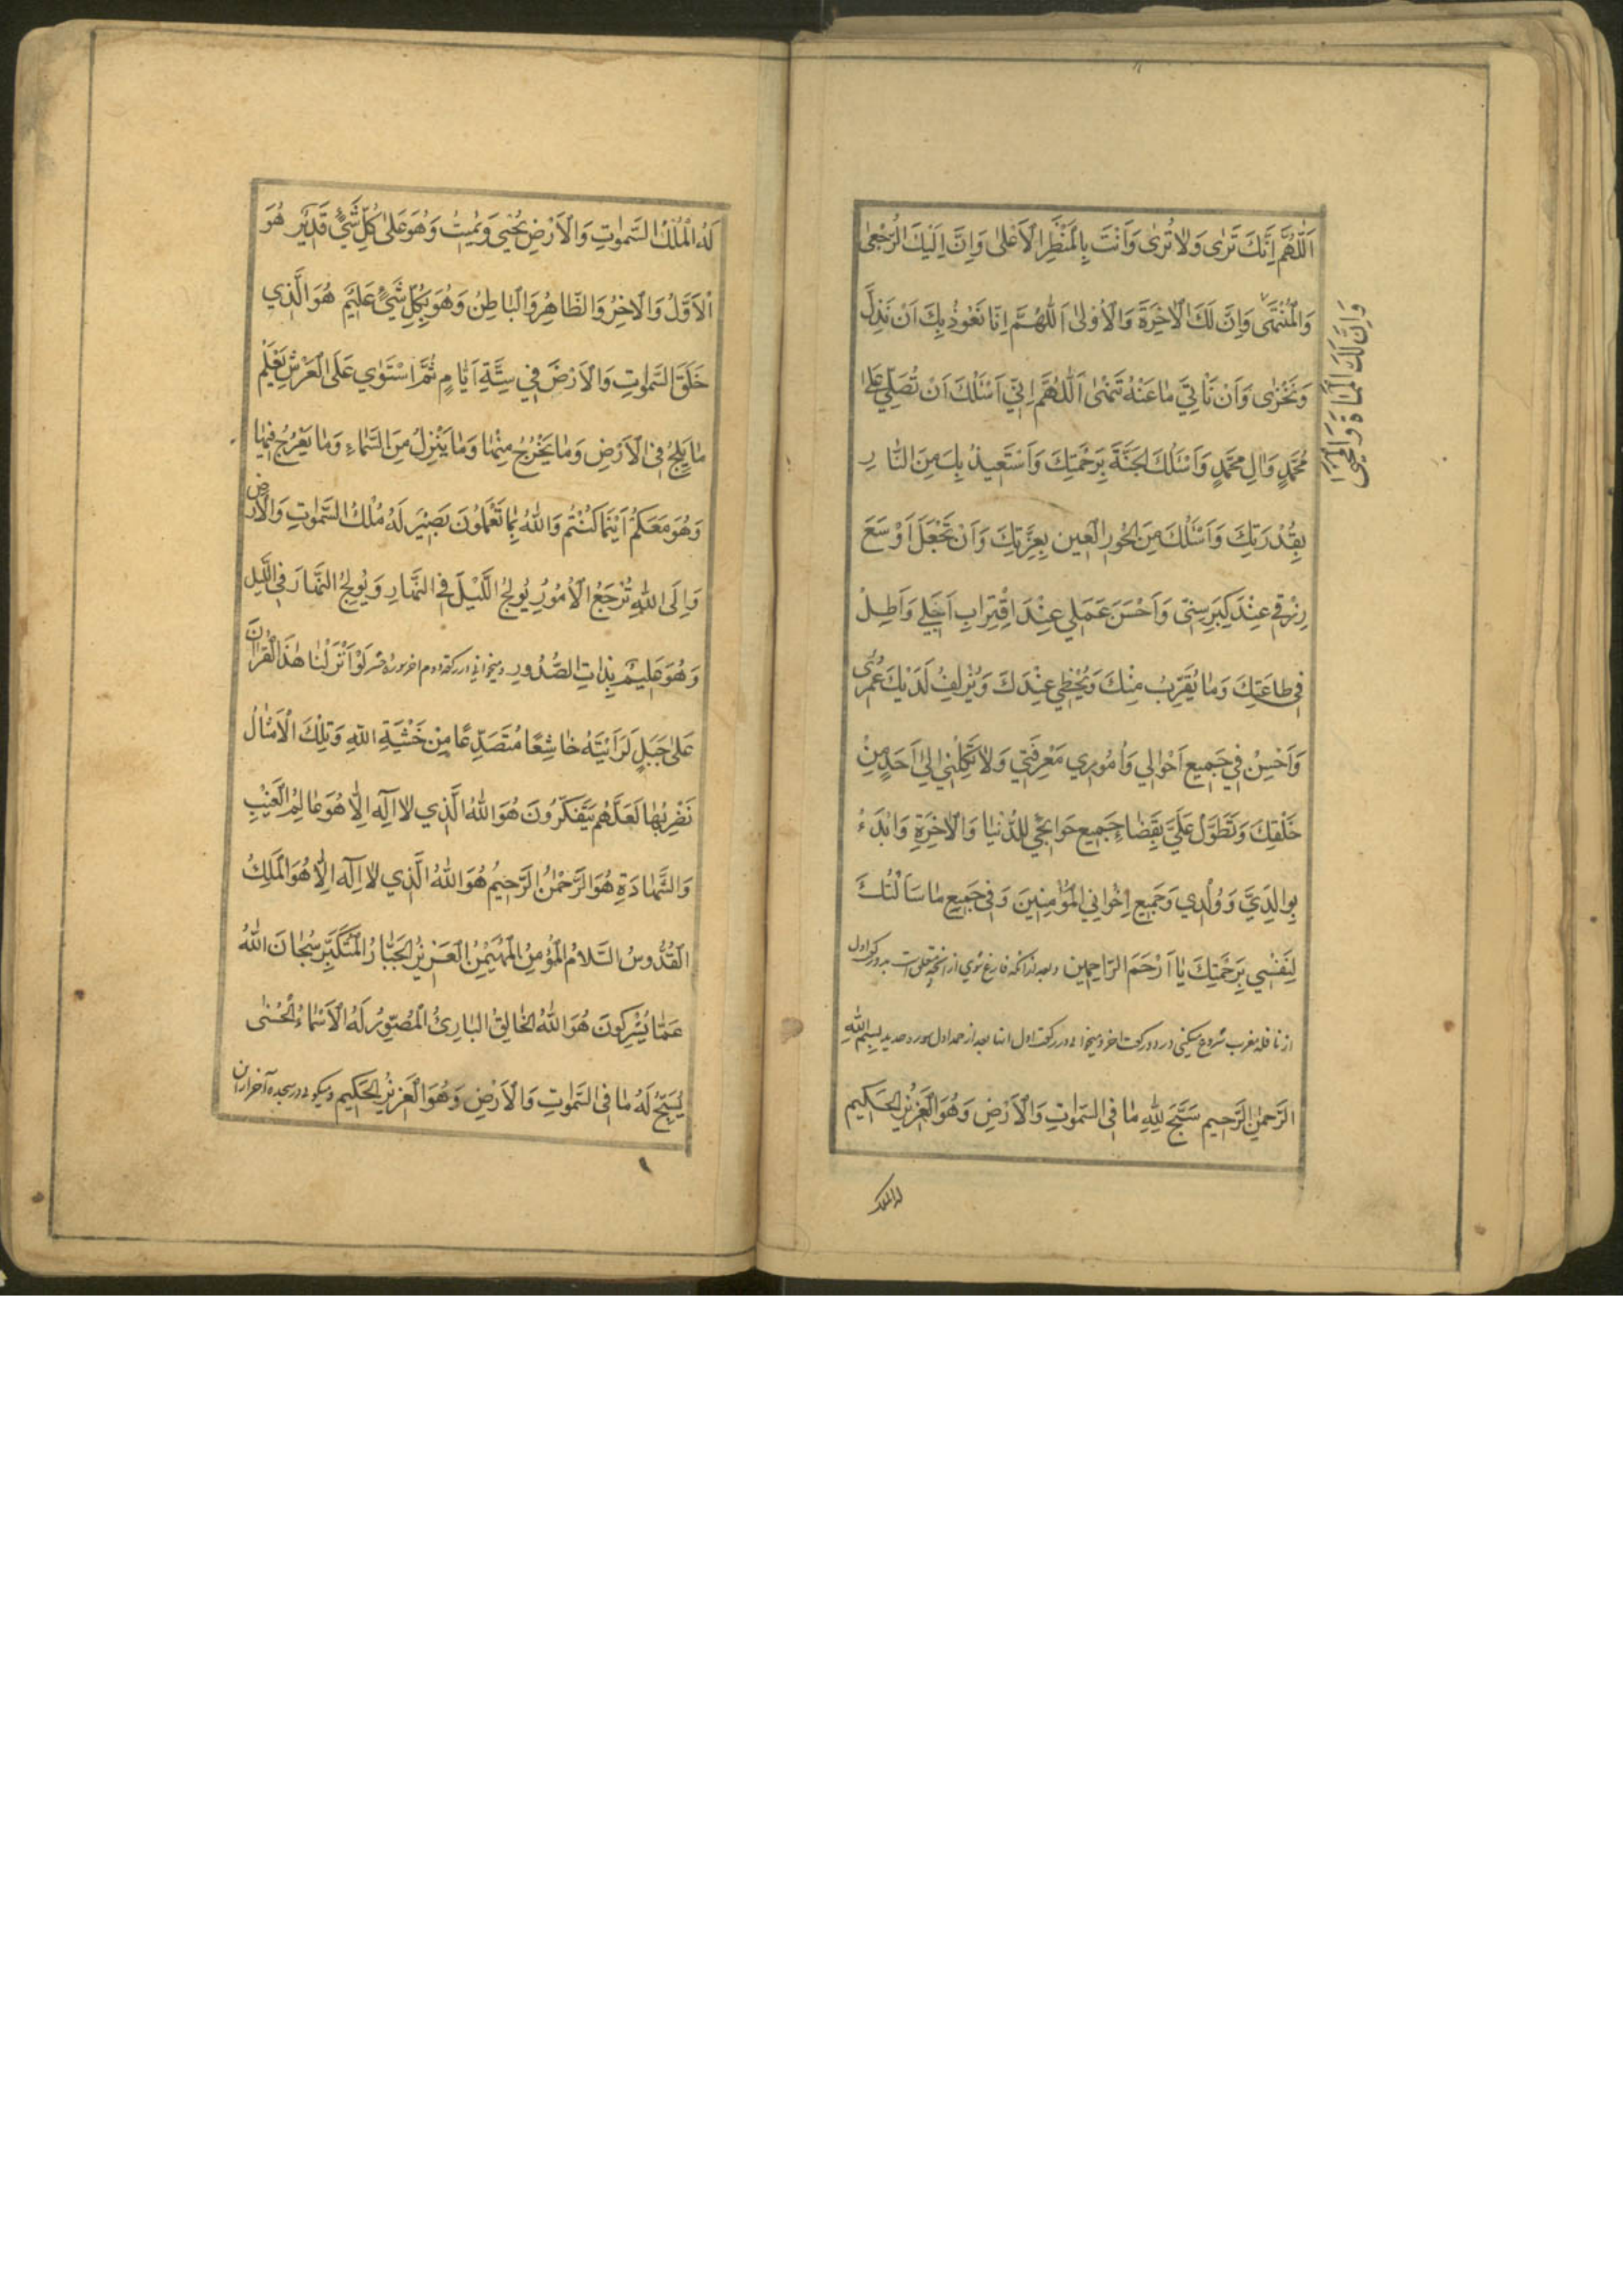 اَللّٰهُمَّ اِنَّكَ تَرٰى وَلٰا تُرٰى وَاَنْتَ بِالْمَنْظَرِ الْاَعْلٰى وَاِنَّ اِلَيْكَ الرُّجْعٰى
وَالْمُنْتَهٰى وَاِنَّ لَكَ الْاٰخِرَةَ وَالْاُوْلٰى اَللّٰهُمَّ اِنّٰا نَعُوْذُ بِكَ اَنْ نَذِلَّ
وَاِنَّ لَكَ الْمَمٰاةَ وَالْمَحْيٰى
وَنَخْزٰى وَاَنْ نَأْتِيَ مٰا عَنْهُ تَنْهٰى اَللّٰهُمَّ اِنّي اَسْئَلُكَ اَنْ تُصَلِّيَ عَلٰى
مُحَمَّدٍ وَاٰلِ مُحَمَّدٍ وَاَسْئَلُكَ الْجَنَّةَ بِرَحْمَتِكَ وَاَسْتَعيذُ بِكَ مِنَ النّٰارِ
بِقُدْرَتِكَ وَاَسْئَلُكَ مِنَ الْحُورِ الْعينِ بِعِزَّتِكَ وَاَنْ تَجْعَلَ اَوْسَعَ
رِزْقي عِنْدَ كِبَرِ سِنّى وَاَحْسَنَ عَمَلي عِنْدَ اقْتِرٰابِ اَجَلي وَاَطِلْ
في طٰاعَتِكَ وَمٰا يُقَرِّبُ مِنْكَ وَيُحْظي عِنْدَكَ وَيُزْلِفُ لَدَيْكَ عُمُرى
وَاَحْسِنْ في جَميعِ اَحْوٰالي وَاُمُوري مَعْرِفَتي وَلٰا تَكِلْني اِلىٰ اَحَدٍ مِنْ
خَلْقِكَ وَتَطَوَّلْ عَلَيَّ بِقَضٰاءِ جَميعِ حَوٰائِجي لِلدُّنْيٰا وَالْاٰخِرَةِ وَابْدَءْ
بِوٰالِدَيَّ وَوُلْدي وَجَميعِ اِخْوٰانِي الْمُؤْمِنِينَ وَفي جَميعِ مٰا سَاَلْتُكَ
لِنَفْسي بِرَحْمَتِكَ يٰا اَرْحَمَ الرّٰاحِمين وبعد از آنكه فارغ شوي از آنچه متعلق است بدو ركعت اول
از نافله مغرب شروع ميكني در دو ركعت اخر و ميخواني در ركعت اول انها بعد از حمد اول سوره حديد بِسْمِ اللهِ
الرَّحْمٰنِ الرَّحيمِ سَبَّحَ لِلّٰهِ مٰا فِى السَّمٰوٰتِ وَالْاَرْضِ وَهُوَ الْعَزيزُ الْحَكيم
له الملك
لَهُ الْمُلْكُ السَّمٰوٰتِ وَالْاَرْضِ يُحْيي وَيُميتُ وَهُوَ عَلىٰ كُلِّ شَيْءٍ قَديرٌ هُوَ
الْاَوَّلُ وَالْاٰخِرُ وَالظّٰاهِرُ وَالْبٰاطِنُ وَهُوَ بِكُلِّ شَيْءٍ عَليمٌ هُوَ الَّذي
خَلَقَ السَّمٰوٰتِ وَالْاَرْضَ في سِتَّةِ اَيّٰامٍ ثُمَّ اسْتَوٰي عَلَى الْعَرْشِ يَعْلَمُ
مٰا يَلِجُ فِى الْاَرْضِ وَمٰا يَخْرُجُ مِنْهٰا وَمٰا يَنْزِلُ مِنَ السَّمٰاءِ وَمٰا يَعْرُجُ فيهٰا
وَهُوَ مَعَكُمْ اَيْنَمٰا كُنْتُمْ وَاللهُ بِمٰا تَعْمَلُوْنَ بَصيْرٌ لَهُ مُلْكُ السَّمٰوٰتِ وَالْاَرْضِ
وَاِلَى اللهِ تُرْجَعُ الْاُمُوْرُ يُولِجُ اللَّيْلَ فِى النَّهٰارِ وَيُولِجُ النَّهٰارَ فِى اللَّيْلِ
وَهُوَ عَليمٌ بِذٰاتِ الصُّدُورِ وميخواني در ركعت دوم اخر سوره حشر لَوْ اَنْزَلْنٰا هٰذَا الْقُرْاٰنَ
عَلىٰ جَبَلٍ لَرَاَيْتَهُ خٰاشِعًا مُتَصَدِّعًا مِنْ خَشْيَةِ اللهِ وَتِلْكَ الْاَمْثٰالُ
نَضْرِبُهٰا لَعَلَّهُمْ يَتَفَكَّرُونَ هُوَ اللهُ الَّذي لٰا اِلٰهَ اِلّٰا هُوَ عٰالِمُ الْغَيْبِ
وَالشَّهٰادَةِ هُوَ الرَّحْمٰنُ الرَّحيمُ هُوَ اللهُ الَّذي لٰا اِلٰهَ اِلّٰا هُوَ الْمَلِكُ
الْقُدُّوسُ السَّلٰامُ الْمُؤْمِنُ الْمُهَيْمِنُ الْعَزيزُ الْجَبّٰارُ الْمُتَكَبِّرُ سُبْحٰانَ اللهِ
عَمّٰا يُشْرِكُونَ هُوَ اللهُ الْخٰالِقُ الْبٰارِئُ الْمُصَوِّرُ لَهُ الْاَسْمٰاءُ الْحُسْنٰى
يُسَبِّحُ لَهُ مٰا فِى السَّمٰوٰتِ وَالْاَرْضِ وَهُوَ الْعَزيزُ الْحَكيم وميگوئي در سجده آخر از اين